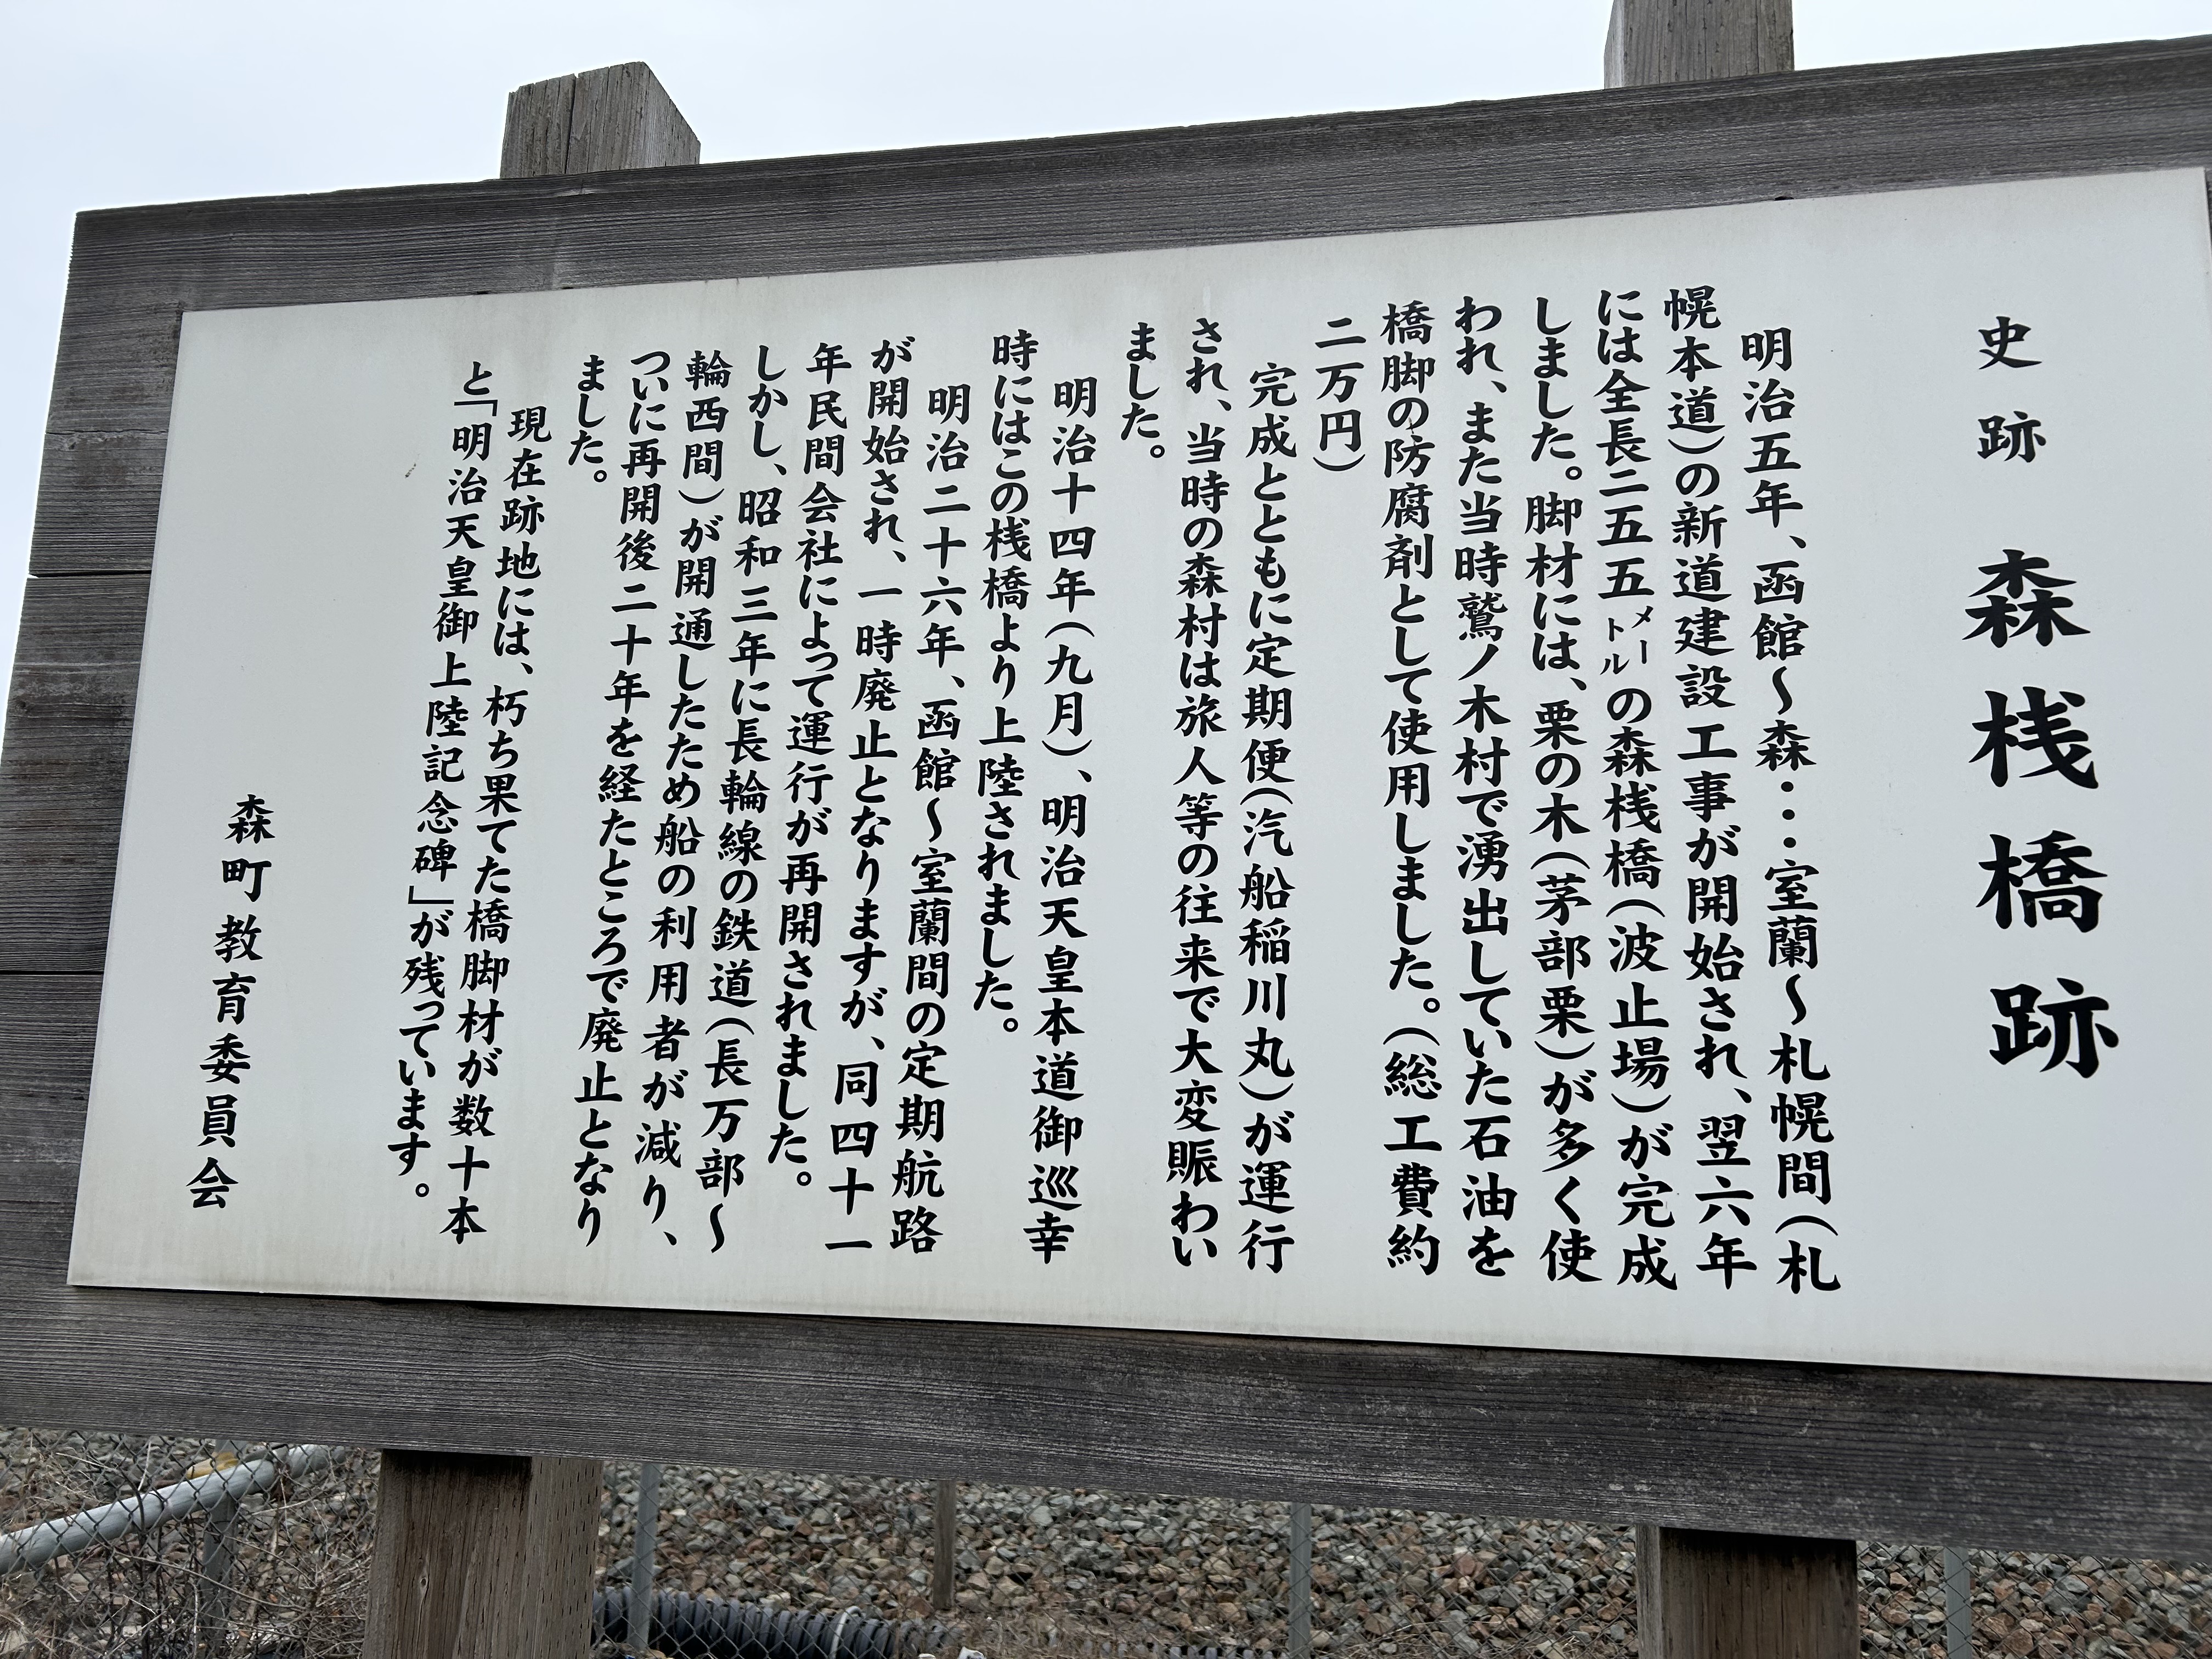 史跡 森桟橋跡
明治五年、函館〜森・・・室蘭〜札幌間(札
幌本道)の新道建設工事が開始され、翌六年
には全長二五五メートルの森桟橋(波止場)が完成
しました。脚材には、栗の木(茅部栗)が多く使
われ、また当時鷲ノ木村で湧出していた石油を
橋脚の防腐剤として使用しました。(総工費約
二万円)
完成とともに定期便(汽船稲川丸)が運行
され、当時の森村は旅人等の往来で大変賑わい
ました。
明治十四年(九月)、明治天皇本道御巡幸
時にはこの桟橋より上陸されました。
明治二十六年、函館〜室蘭間の定期航路
が開始され、一時廃止となりますが、同四十一
年民間会社によって運行が再開されました。
しかし、昭和三年に長輪線の鉄道(長万部〜
輪西間)が開通したため船の利用者が減り、
ついに再開後二十年を経たところで廃止となり
ました。
現在跡地には、朽ち果てた橋脚材が数十本
と「明治天皇御上陸記念碑」が残っています。
森町教育委員会